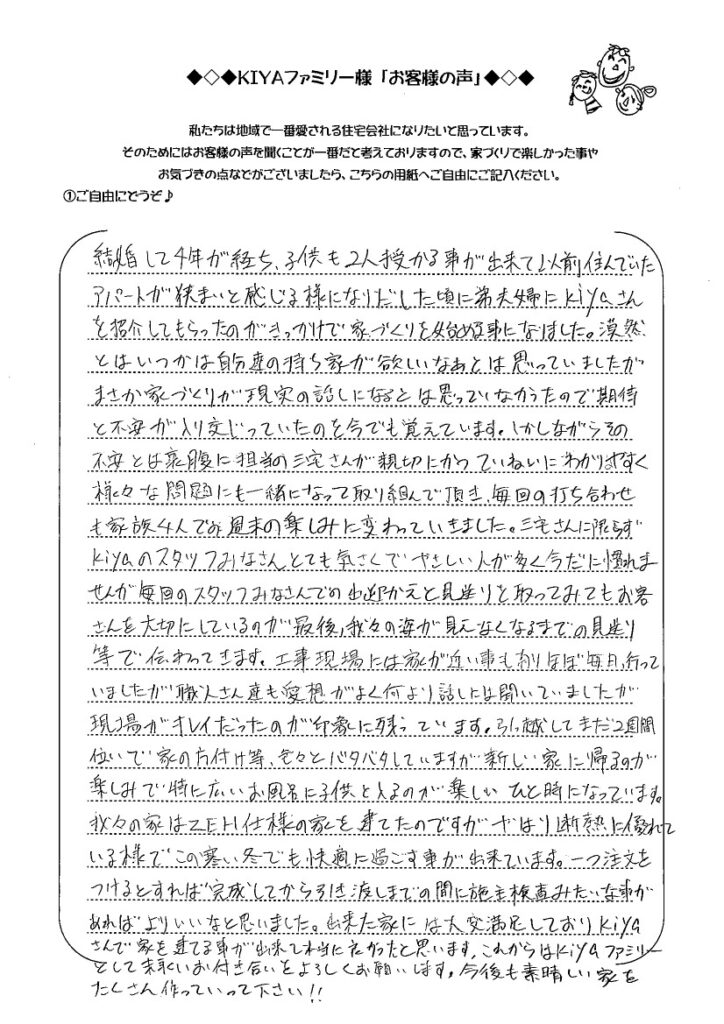 ◆◇◆KIYAファミリー様「お客様の声」◆◇◆
私たちは地域で一番愛される住宅会社になりたいと思っています。
そのためにはお客様の声を聞くことが一番だと考えておりますので、家づくりで楽しかった事や
お気づきの点などがございましたら、こちらの用紙へご自由にご記入ください。
①ご自由にどうぞ♪
結婚して4年が経ち、子供も2人授かる事が出来て以前住んでいた
アパートが狭まいと感じる様になりだした頃に弟夫婦にkiyaさん
を紹介してもらったのがきっかけで家づくりを始める事になりました。漠然
とはいつかは自分達の持ち家が欲しいなぁとは思っていましたが
まさか家づくりが現実の話しになるとは思っていなかったので期待
と不安が入り交じっていたのを今でも覚えています。しかしながらその
不安とは裏腹に担当の三宅さんが親切にかつていねいにわかりやすく
様々な問題にも一緒になって取り組んで頂き、毎回の打ち合わせ
も家族4人での週末の楽しみに変わっていきました。三宅さんに限らず
kiyaのスタッフみなさんとても気さくでやさしい人が多く今だに慣れま
せんが毎回のスタッフみなさんでの出迎かえと見送りを取ってみてもお客
さんを大切にしているのが最後、我々の姿が見えなくなるまでの見送り
等で伝わってきます。工事現場には家が近い事も有りほぼ毎日、行って
いましたが職人さん達も愛想がよく何より話しには聞いていましたが
現場がキレイだったのが印象に残っています。引っ越してまだ2週間
位いで家の片付け等、色々とバタバタしていますが新しい家に帰るのが
楽しみで特に広いお風呂に子供と入るのが楽しいひと時になっています。
我々の家はZEH仕様の家を建てたのですがやはり断熱に優れて
いる様でこの寒い冬でも快適に過ごす事が出来ています。一つ注文を
つけるとすれば完成してから引き渡しまでの間に施主検査みたいな事が
あればよりいいなと思いました。出来た家には大変満足しておりkiya
さんで家を建てる事が出来て本当に良かったと思います。これからはkiyaファミリー
として末永いお付き合いをよろしくお願いします。今後も素晴しい家を
たくさん作っていって下さい!!